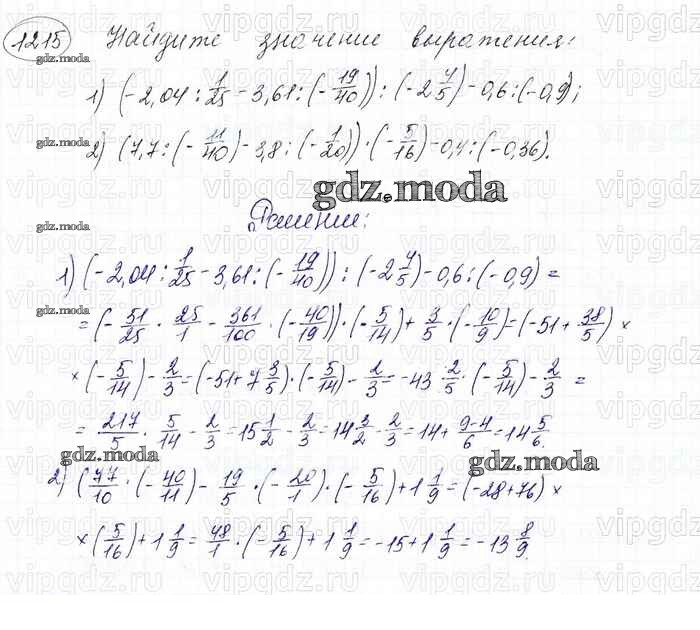 1215 Найдите значение выражения:
gdz.moda
1) (-2,04 : 1/25 - 3,61 : (-19/40)) : (-2 4/5) - 0,6 : (-0,9);
2) (7,7 : (-11/40) - 3,8 : (-1/20)) · (-5/16) - 0,4 : (-0,36).
gdz.moda
gdz.moda
Решение:
gdz.moda
1) (-2,04 : 1/25 - 3,61 : (-19/40)) : (-2 4/5) - 0,6 : (-0,9) =
gdz.moda
= (-51/25 · 25/1 - 361/100 · (-40/19)) · (-5/14) + 3/5 · (-10/9) = (-51 + 38/5) ×
× (-5/14) - 2/3 = (-51 + 7 3/5) · (-5/14) - 2/3 = -43 2/5 · (-5/14) - 2/3 =
= 217/5 · 5/14 - 2/3 = 15 1/2 - 2/3 = 14 3/2 - 2/3 = 14 + 9-4/6 = 14 5/6.
gdz.moda
gdz.moda
2) (77/10 · (-40/11) - 19/5 · (-20/1) · (-5/16) + 1 1/9 = (-28 + 76) ×
× (5/16) + 1 1/9 = 48/1 · (-5/16) + 1 1/9 = -15 + 1 1/9 = -13 8/9.
gdz.moda
vipgdz.ru